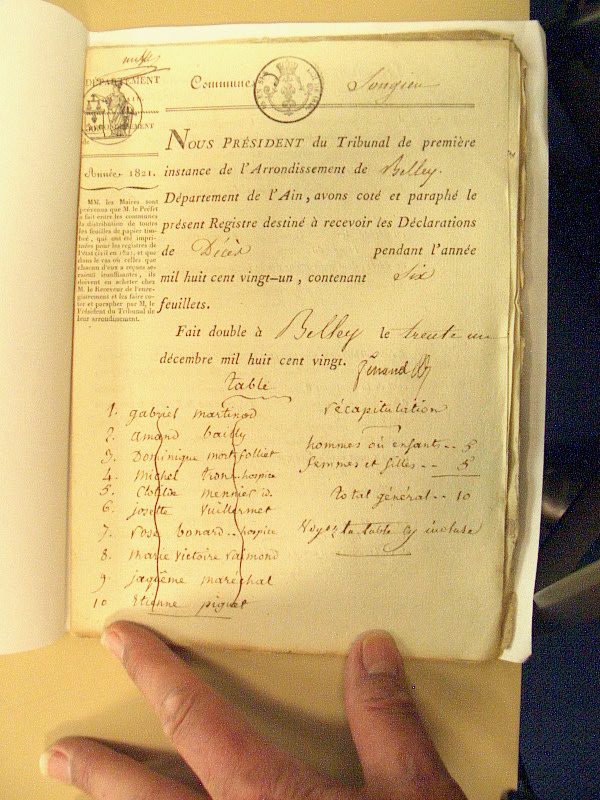 DÉPARTEMENT
Commune
Songieu
ARRONDISSEMENT
de
Année 1821.
MM. les Maires sont
prévenus que M. le Préfet
a fait entre les communes
la distribution de toutes
les feuilles de papier tim-
bré, qui ont été impri-
mées pour les registres de
l'état civil en 1821, et que
dans le cas où celles que
chacun d'eux a reçues se-
raient insuffisantes, ils
doivent en acheter chez
M. le Receveur de l'enre-
gistrement et les faire co-
ter et parapher par M. le
Président du Tribunal de
leur arrondissement.
NOUS PRÉSIDENT du Tribunal de première
instance de l'Arrondissement de Belley.
Département de l'Ain, avons coté et paraphé le
présent Registre destiné à recevoir les Déclarations
de Décès pendant l'année
mil huit cent vingt-un, contenant Six
feuillets.
Fait double à Belley le trente un
décembre mil huit cent vingt.
table
1. gabriel martinod
2. amand bailly
3. Dominique montfolliet
4. michel tron hospice
5 Clotilde mennier id.
6. josette vuillermet
7. rose bonard .. hospice
8. marie victoire raimond
9. jaquême maréchal
10 Etienne piguet
récapitulation
hommes où enfants .. 5
femmes et filles .. 5
total général .. 10
Voyez la table cy incluse